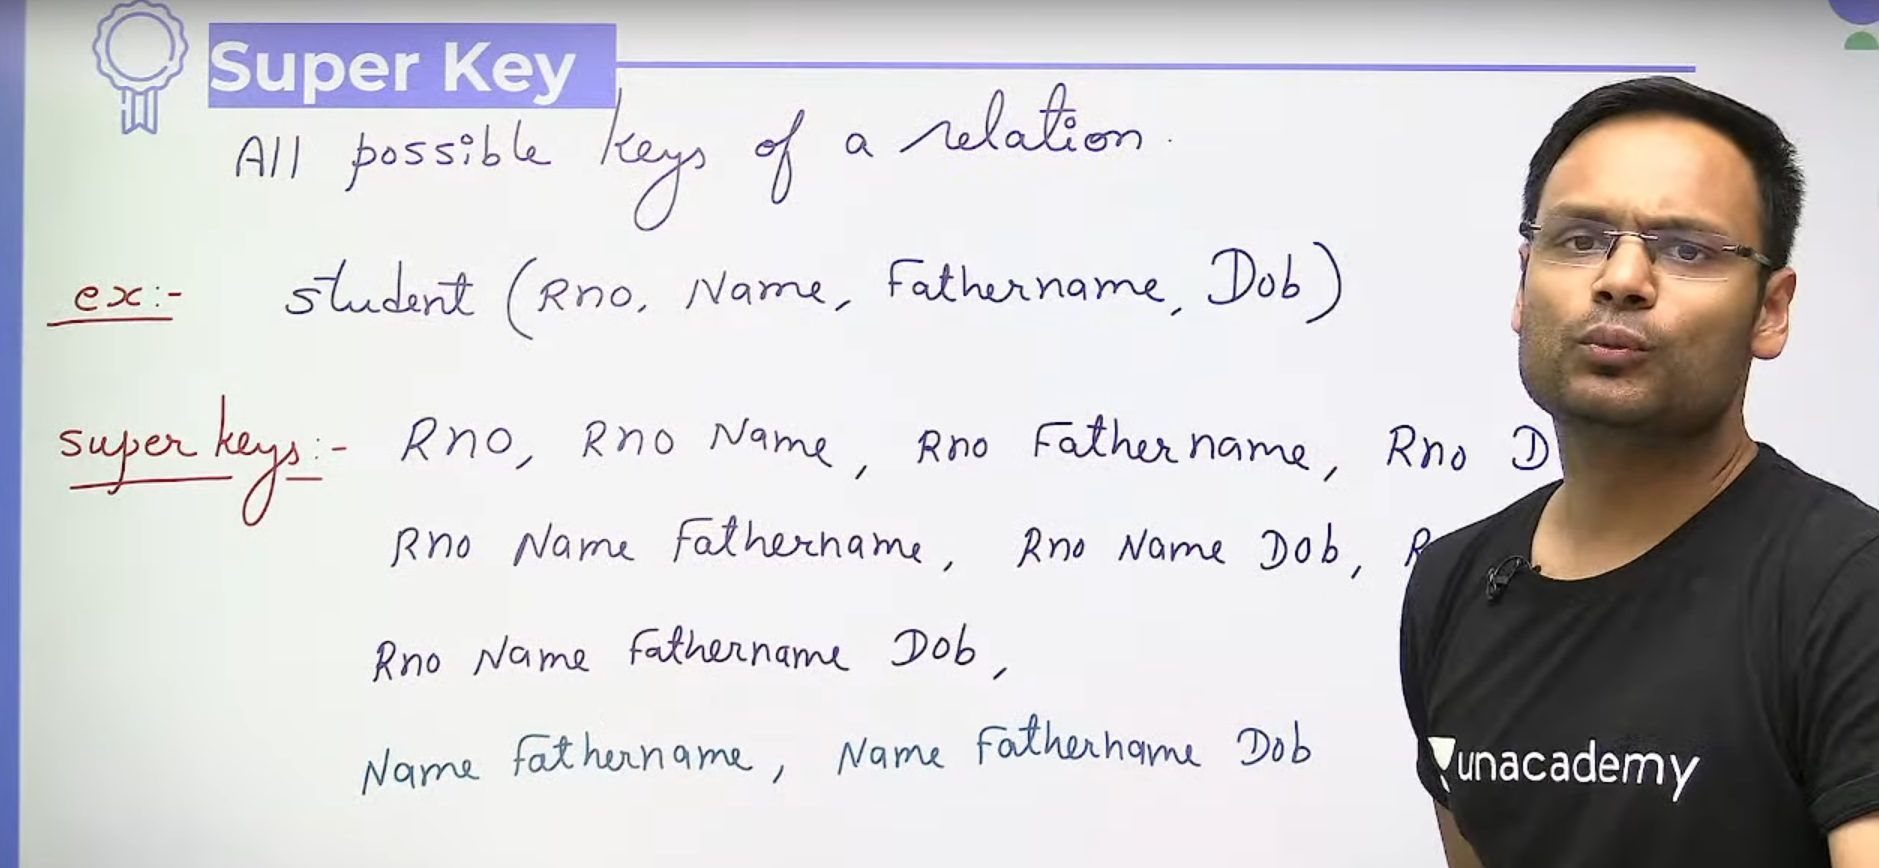 Super Key
All possible keys of a relation.
ex:- student (Rno, Name, Fathername, Dob)
super keys:- Rno, Rno Name, Rno Fathername, Rno D
Rno Name Fathername, Rno Name Dob, R
Rno Name Fathername Dob,
Name Fathername, Name Fathername Dob
unacademy